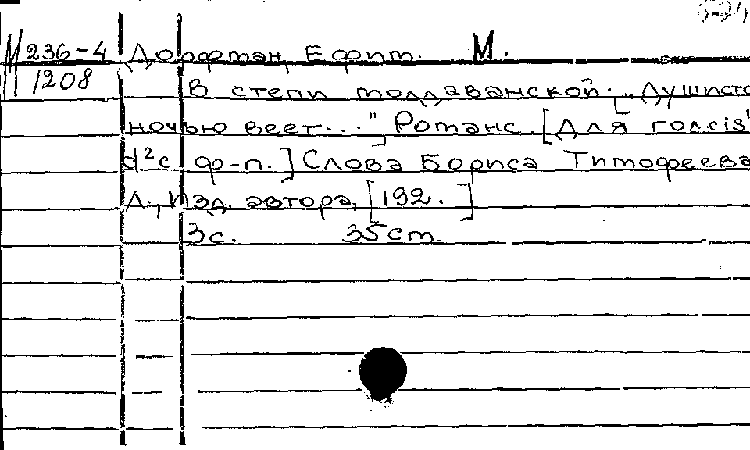 М 236-4 Дорфман, Ефим. М.
1208 В степи молдаванской. ["Душисто
ночью веет..."] Романс. [Для голоса
d²c ф-п.] Слова Бориса Тимофеева
Л., Изд. автора, [192. ]
3с. 35cm.